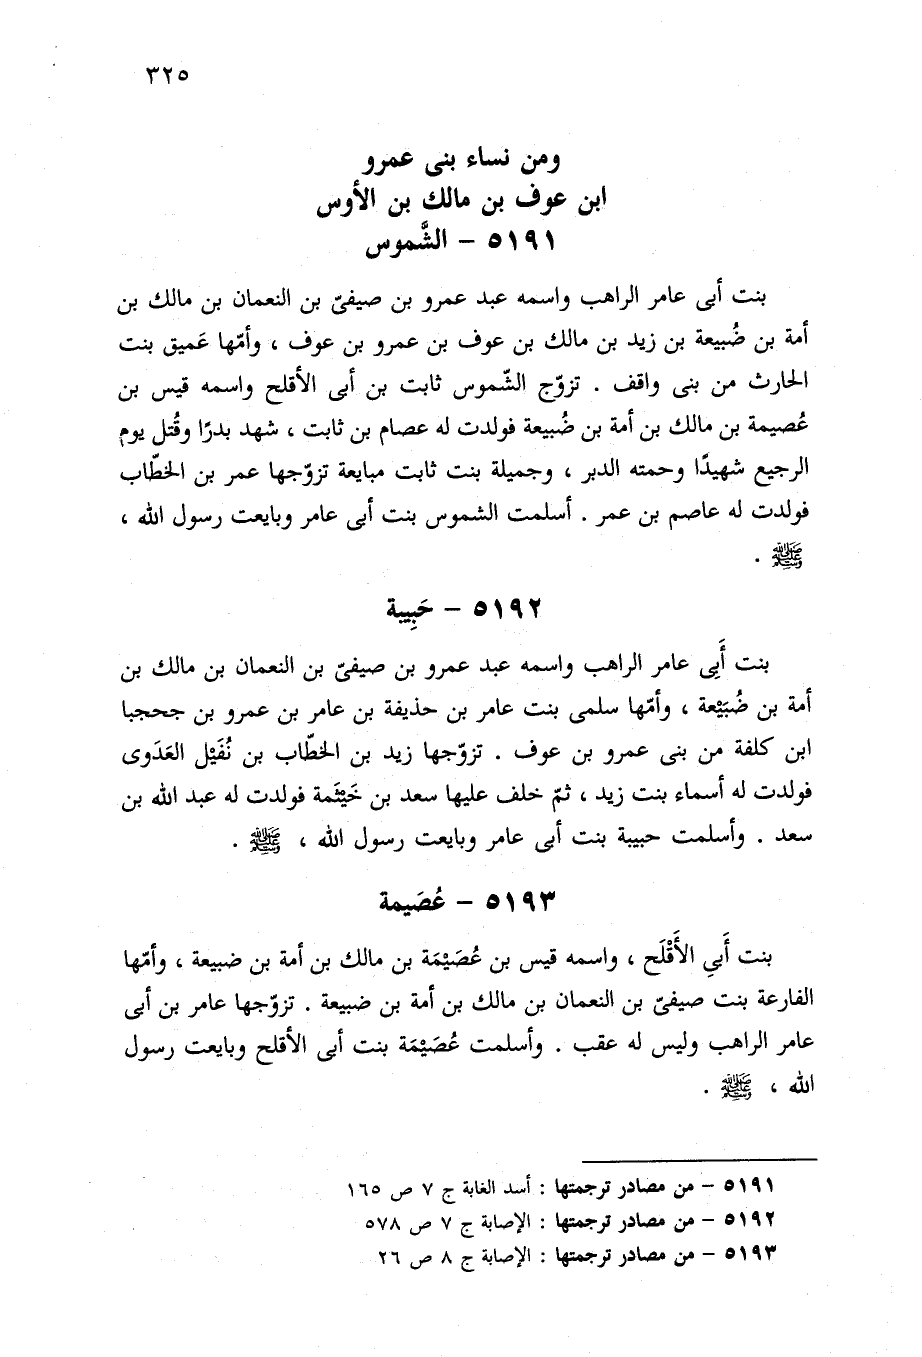 ٣٢٥
ومن نساء بنى عمرو
ابن عوف بن مالك بن الأوس
٥١٩١ - الشَّموس
بنت أبى عامر الراهب واسمه عبد عمرو بن صيفىّ بن النعمان بن مالك بن
أمة بن ضُبيعة بن زيد بن مالك بن عوف بن عمرو بن عوف ، وأمّها عَميق بنت
الحارث من بنى واقف . تزوّج الشّموس ثابت بن أبى الأقلح واسمه قيس بن
عُصيمة بن مالك بن أمة بن ضُبيعة فولدت له عصام بن ثابت ، شهد بدرًا وقُتل يوم
الرجيع شهيدًا وحمته الدبر ، وجميلة بنت ثابت مبايعة تزوّجها عمر بن الخطّاب
فولدت له عاصم بن عمر . أسلمت الشموس بنت أبى عامر وبايعت رسول الله ،
ﷺ .
٥١٩٢ - حَبِيبة
بنت أَبِى عامر الراهب واسمه عبد عمرو بن صيفىّ بن النعمان بن مالك بن
أمة بن ضُبَيْعة ، وأمّها سلمى بنت عامر بن حذيفة بن عامر بن عمرو بن جحجبا
ابن كلفة من بنى عمرو بن عوف . تزوّجها زيد بن الخطّاب بن نُفَيْل العَدَوى
فولدت له أسماء بنت زيد ، ثمّ خلف عليها سعد بن خَيْثَمة فولدت له عبد الله بن
سعد . وأسلمت حبيبة بنت أبى عامر وبايعت رسول الله ، ﷺ .
٥١٩٣ - عُصَيمة
بنت أَبِي الأَقْلَح ، واسمه قيس بن عُصَيْمَة بن مالك بن أمة بن ضبيعة ، وأمّها
الفارعة بنت صيفىّ بن النعمان بن مالك بن أمة بن ضبيعة . تزوّجها عامر بن أبى
عامر الراهب وليس له عقب . وأسلمت عُصَيْمَة بنت أبى الأقلح وبايعت رسول
الله ، ﷺ .
٥١٩١ - من مصادر ترجمتها : أسد الغابة ج ٧ ص ١٦٥
٥١٩٢ - من مصادر ترجمتها : الإصابة ج ٧ ص ٥٧٨
٥١٩٣ - من مصادر ترجمتها : الإصابة ج ٨ ص ٢٦